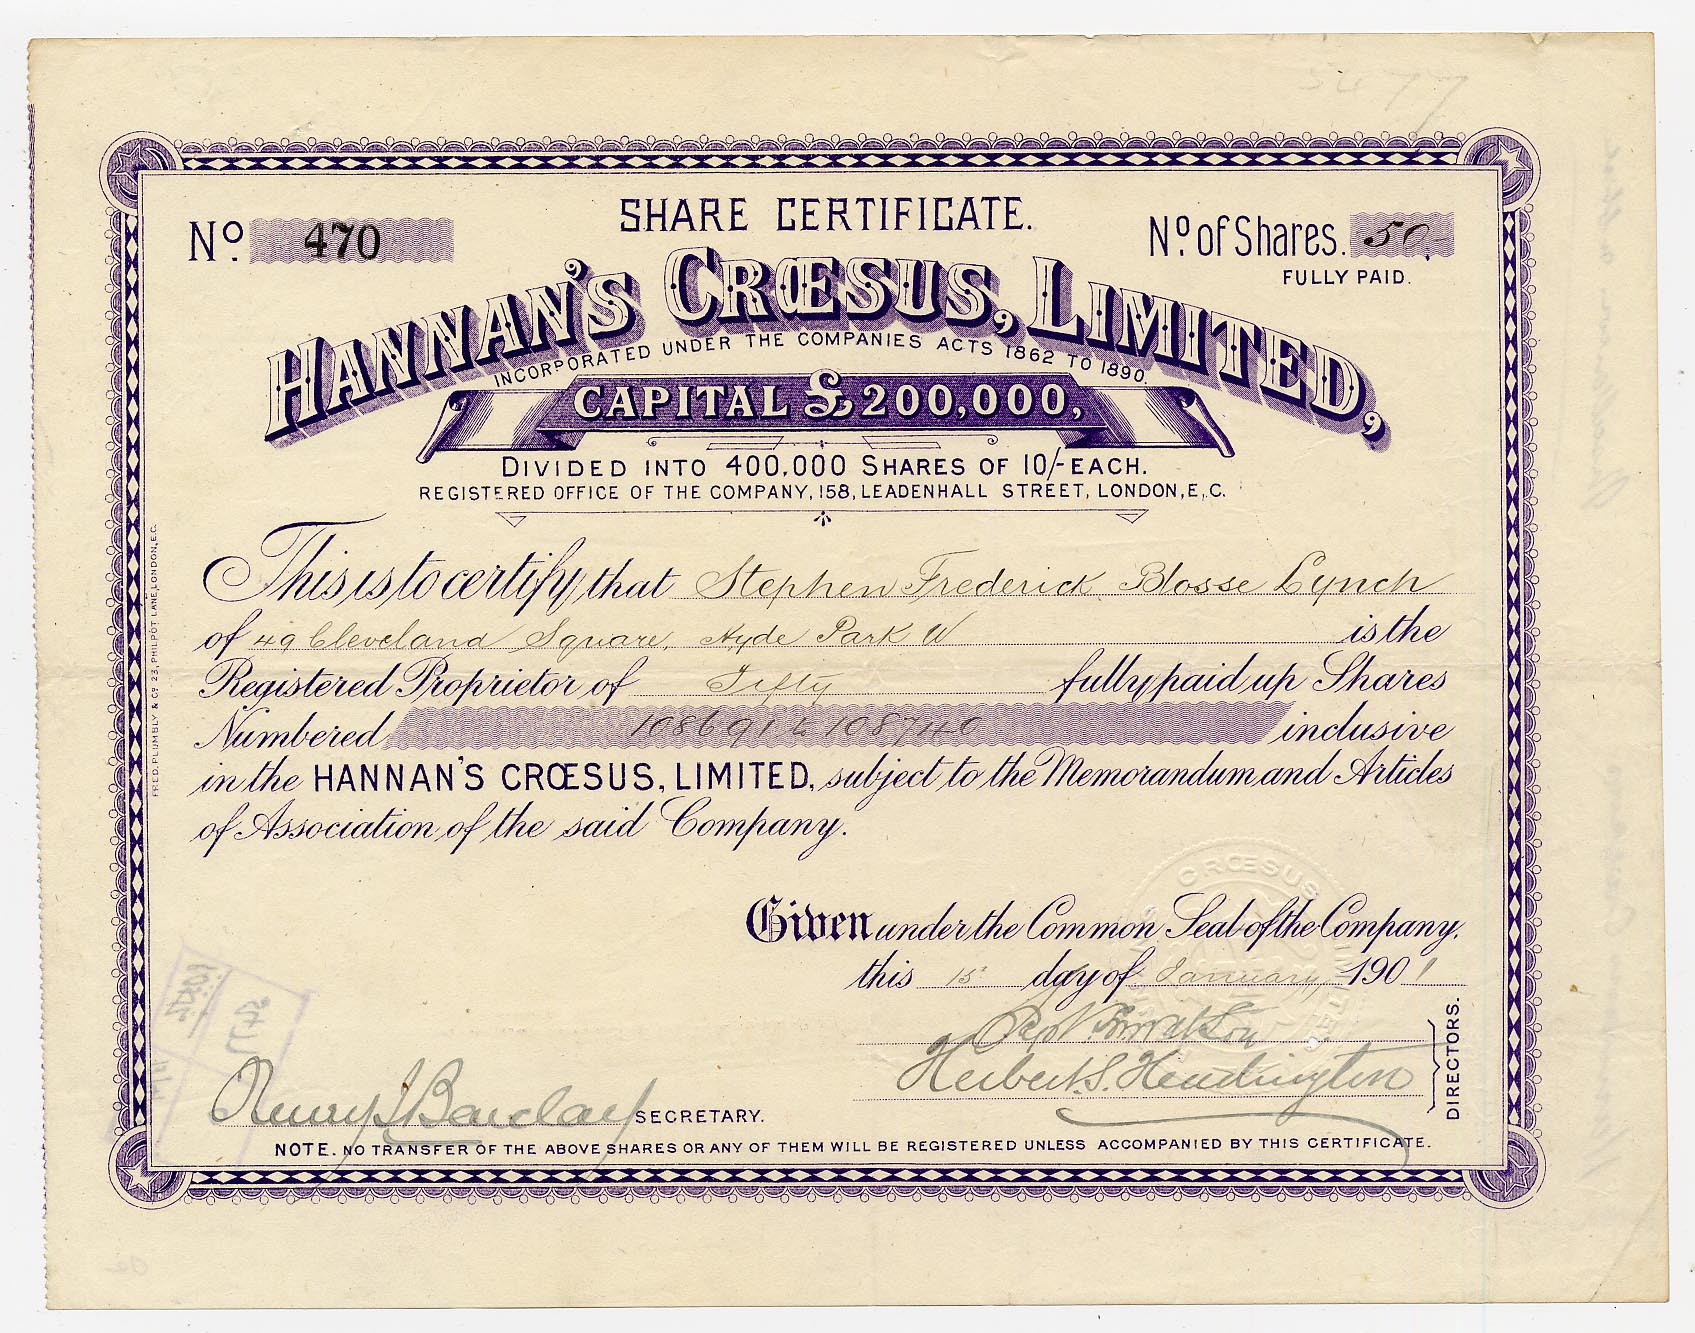 SHARE CERTIFICATE.
No. 470
No. of Shares. 50
FULLY PAID.
HANNAN'S CRŒSUS, LIMITED,
INCORPORATED UNDER THE COMPANIES ACTS 1862 TO 1890.
CAPITAL £200,000,
DIVIDED INTO 400,000 SHARES OF 10/- EACH.
REGISTERED OFFICE OF THE COMPANY, 158, LEADENHALL STREET, LONDON, E.C.
This is to certify that Stephen Frederick Blosse Lynch
of 49 Cleveland Square, Hyde Park W is the
Registered Proprietor of Fifty fully paid up Shares
Numbered 108691 to 108740 inclusive
in the HANNAN'S CRŒSUS, LIMITED, subject to the Memorandum and Articles
of Association of the said Company.
Given under the Common Seal of the Company.
this 15th day of January 1901
Herbert S. Hendington
DIRECTORS.
Henry J Barclay SECRETARY.
NOTE. NO TRANSFER OF THE ABOVE SHARES OR ANY OF THEM WILL BE REGISTERED UNLESS ACCOMPANIED BY THIS CERTIFICATE.
FRED. PLUMBLY & CO. 23, PHILPOT LANE, LONDON, E.C.
CRŒSUS